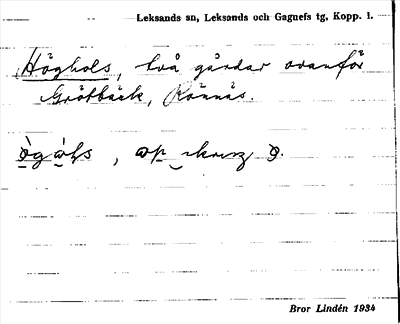 Leksands sn, Leksands och Gagnefs tg, Kopp. l.
Höghols, två gårdar ovanför
Gråtbäck, Rönnäs.
Bror Lindén 1934